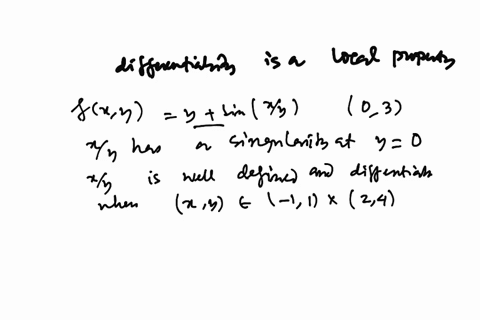 differentiability is a local property
f(x,y) = y + sin(x/y) (0,3)
x/y has a singularity at y=0
x/y is well defined and differentiable
when (x,y) ∈ (-1,1) × (2,4)